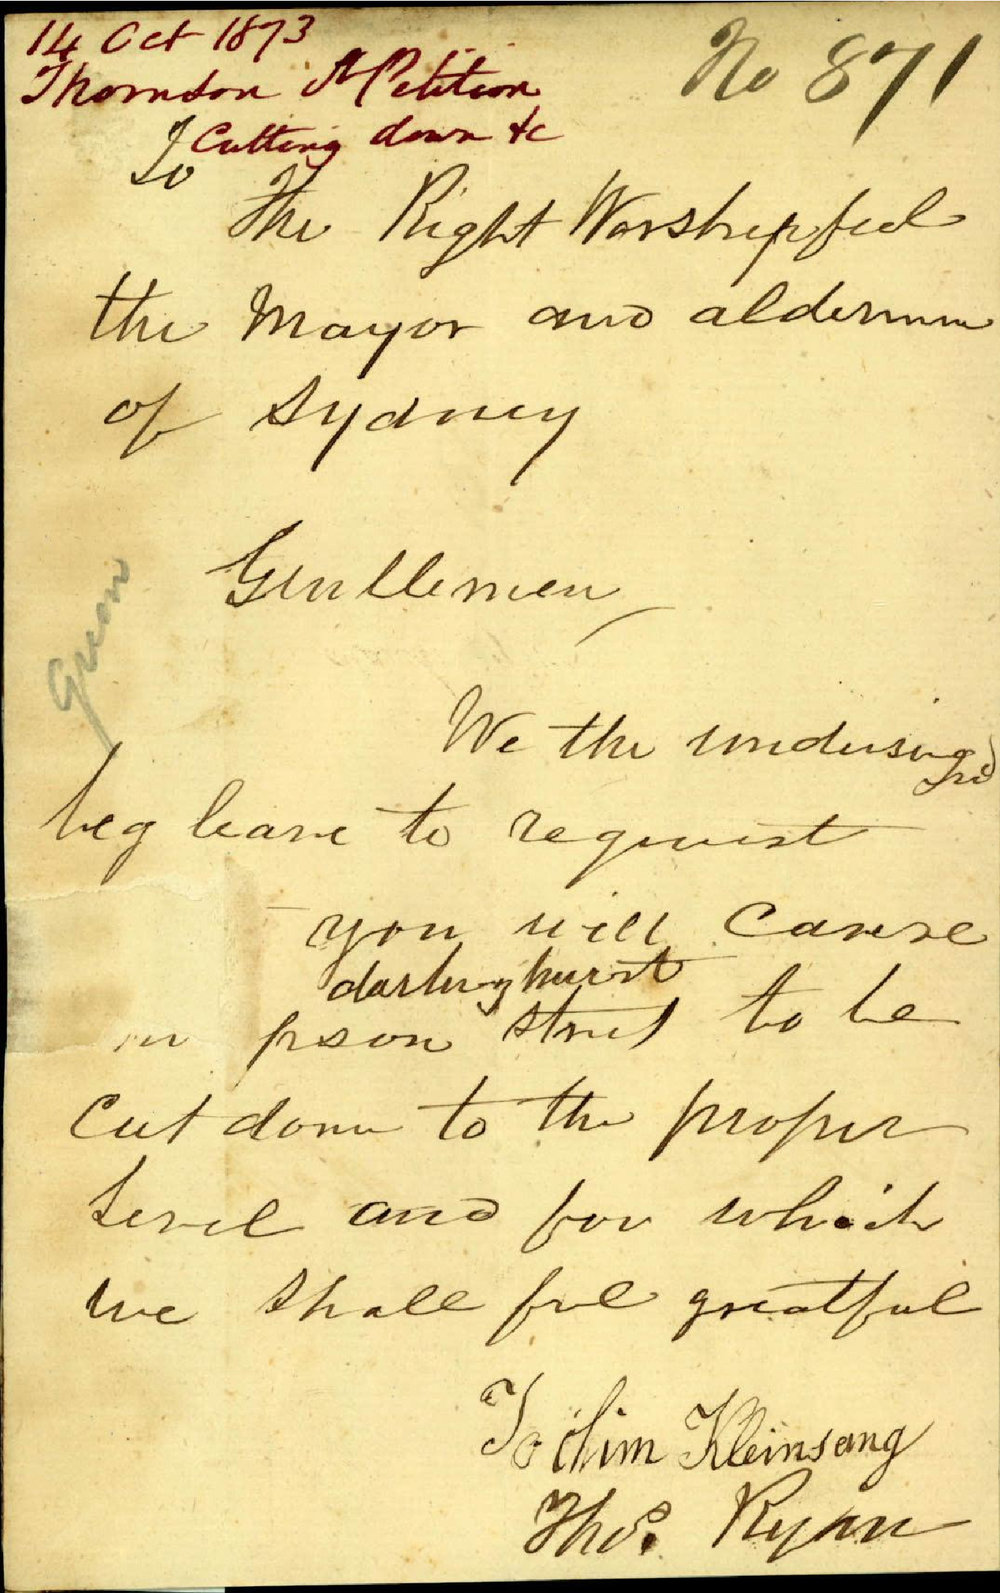 14 Oct 1873
No 871
Thomson St Petition
Cutting down &c
To
The Right Worshipful
the Mayor and aldermen
of Sydney
Gentlemen
Green
We the undersingned
beg leave to request
you will cause
darlinghurst
mpson street to be
Cut down to the proper
Level and for which
we shall feel greatful
Jochim Kleinsang
Thos. Ryan